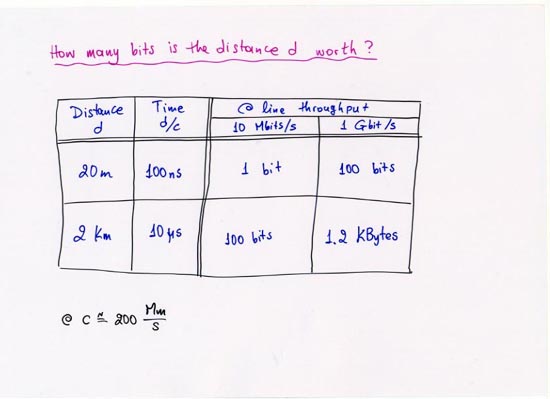 How many bits is the distance d worth ?
Distance d
Time d/c
@ line throughput
10 Mbits/s
1 Gbit/s
20m
100ns
1 bit
100 bits
2 Km
10 μs
100 bits
1.2 kBytes
@ c ≅ 200 Mm/s